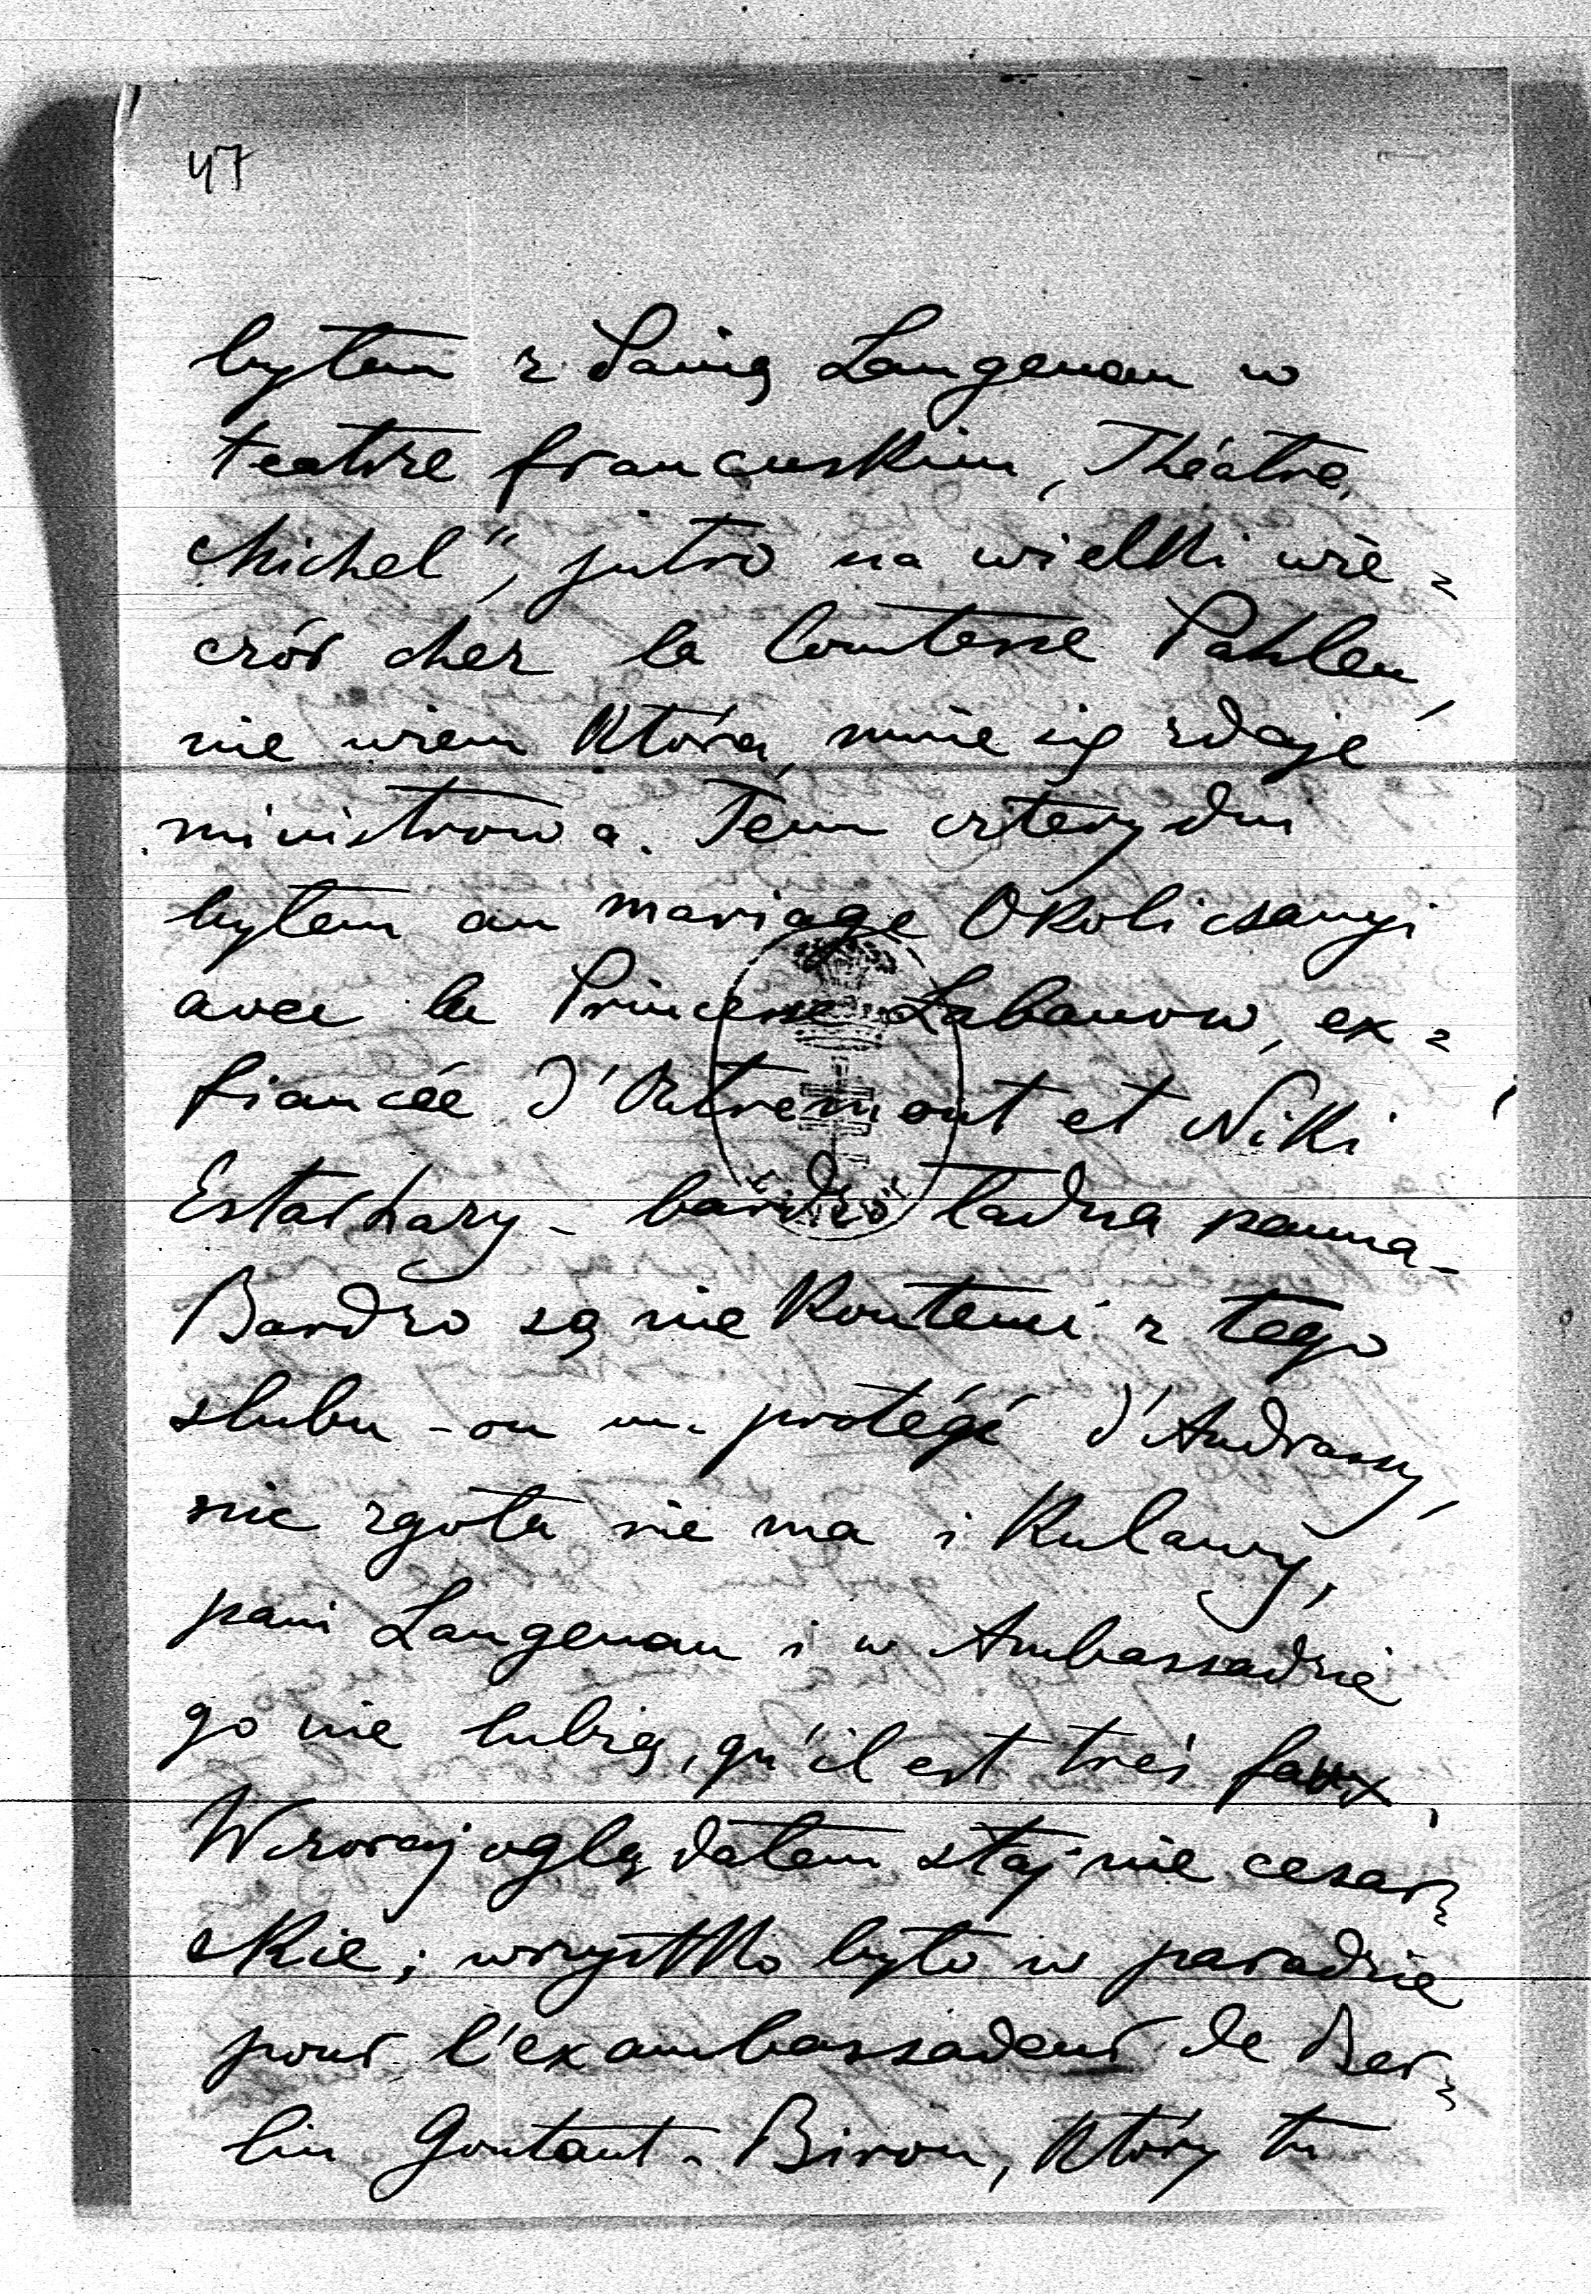 47
byłem z Panią Langenau w
teatrze francuskim, Théatre
Michel", jutro na wielki wie=
czór chez la Comtesse Pahlen,
nie wiem która, mnie się zdaje
ministrowa. Temu cztery dni
byłem au mariage Okolicsanyi
avec la Princesse Labanow, ex=
fiancée d'Outremont et Niki
Estarhazy - bardzo ładna panna -
Bardzo są nie kontenci z tego
slubu - on un protégé d'Andrassy,
nic zgoła nie ma i kulawy,
pani Langenau i w Ambassadzie
go nie lubią, qu'il est très faux.
Wczoraj oglądałem stajnie cesar=
skie; wszystko było w paradzie
pour l'exambassadeur de Ber=
lin Gontaut-Biron, który tu